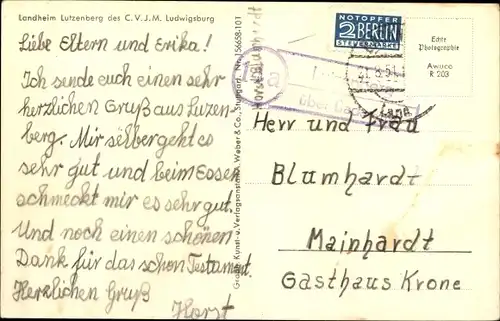 Landheim Lutzenberg des C.V.J.M. Ludwigsburg
Liebe Eltern und Erika!
Ich sende euch einen sehr
herzlichen Gruß aus Luzen
berg. Mir selber geht es
sehr gut und beim Essen
schmeckt mir es sehr gut.
Und noch einen schönen
Dank für das schon Testament.
Herzlichen Gruß
Horst
Horst Blumhardt
Graph. Kunst- u. Verlagsanstalt, Weber & Co., Stuttgart
NOTOPFER
2 BERLIN
STEUERMARKE
14a
über
Echte
Photographie
Awuco
R 203
Herr und Frau
Blumhardt
Mainhardt
Gasthaus Krone